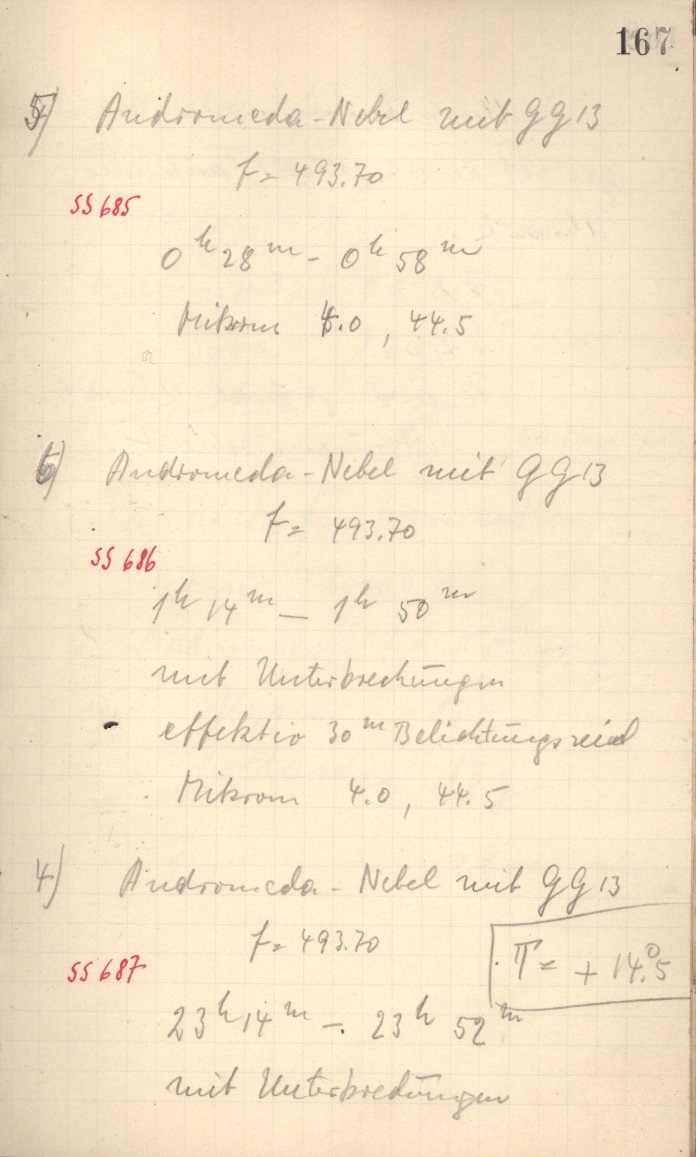 167
5) Andromeda-Nebel mit GG13
f = 493.70
SS 685
0h 28m - 0h 58m
Mikrom 4.0, 44.5
6) Andromeda-Nebel mit GG13
f = 493.70
SS 686
1h 14m — 1h 50m
mit Unterbrechungen
effektiv 30m Belichtungszeit
Mikrom 4.0, 44.5
4) Andromeda-Nebel mit GG13
f = 493.70
T = + 14°.5
SS 687
23h 14m - 23h 52m
mit Unterbrechungen